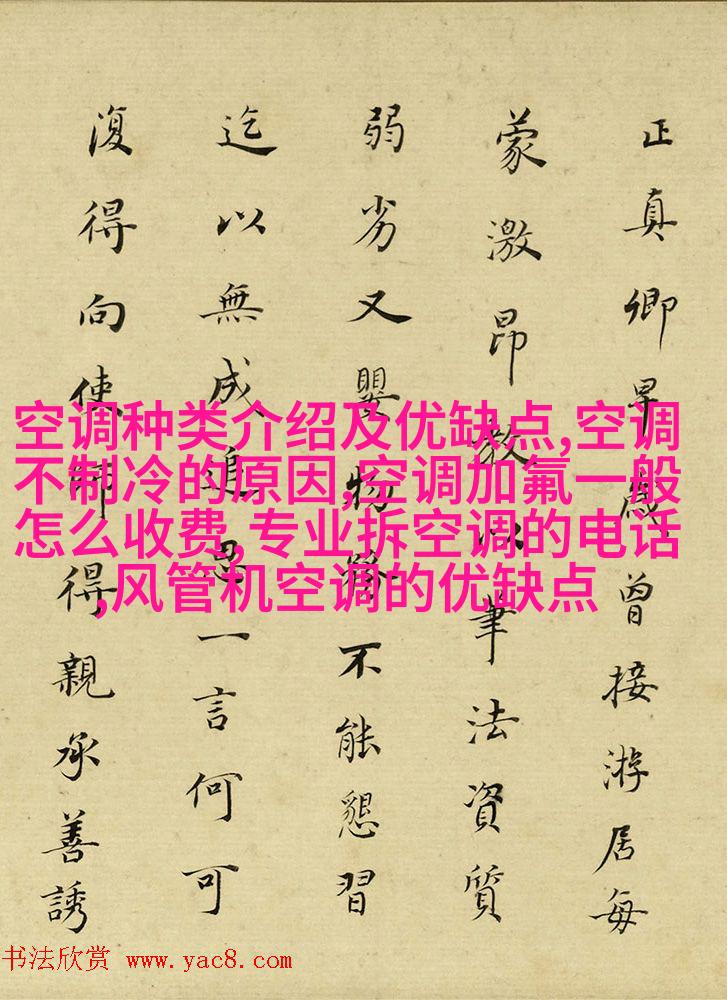 正真卿早歲曾接游居每
蒙激昂教以筆法資質
弱劣又嬰物務不能懇習
迄以無成追思一言何可
復得向使師得親承善誘
空调种类介绍及优缺点,空调
不制冷的原因,空调加氟一般
怎么收费,专业拆空调的电话
,风管机空调的优缺点
书法欣赏 www.yac8.com